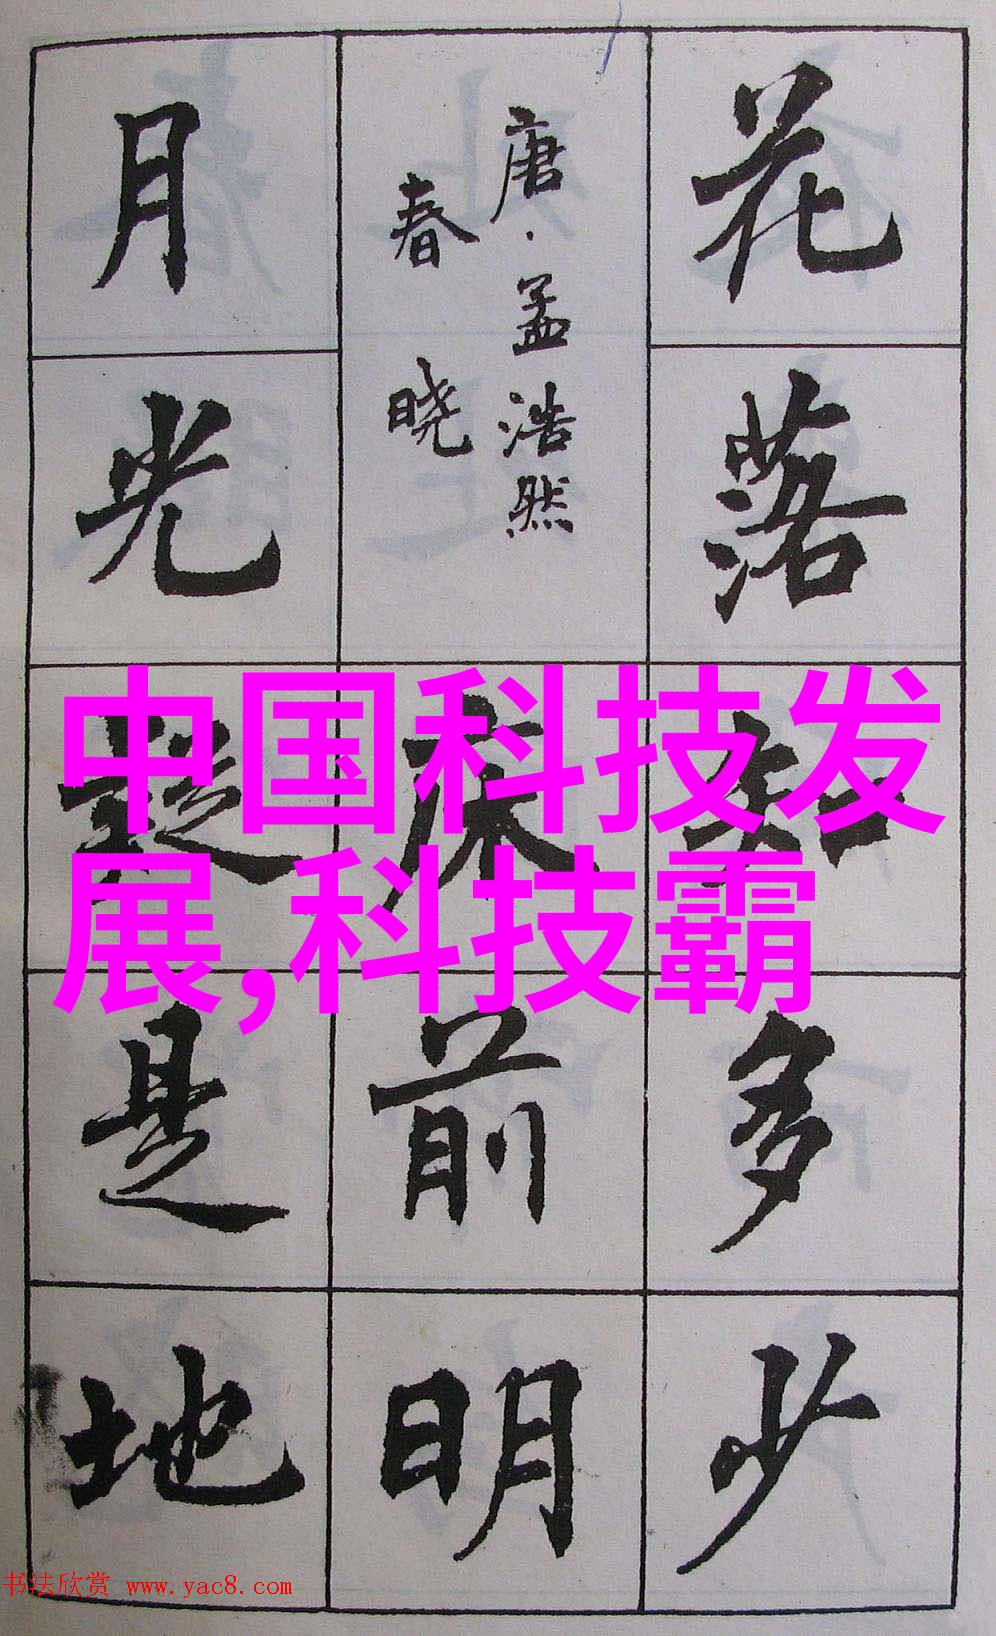 花落知多少
唐·孟浩然
春晓
床前明
月光疑是地
中国科技发
展,科技霸
书法欣赏 www.yac8.com